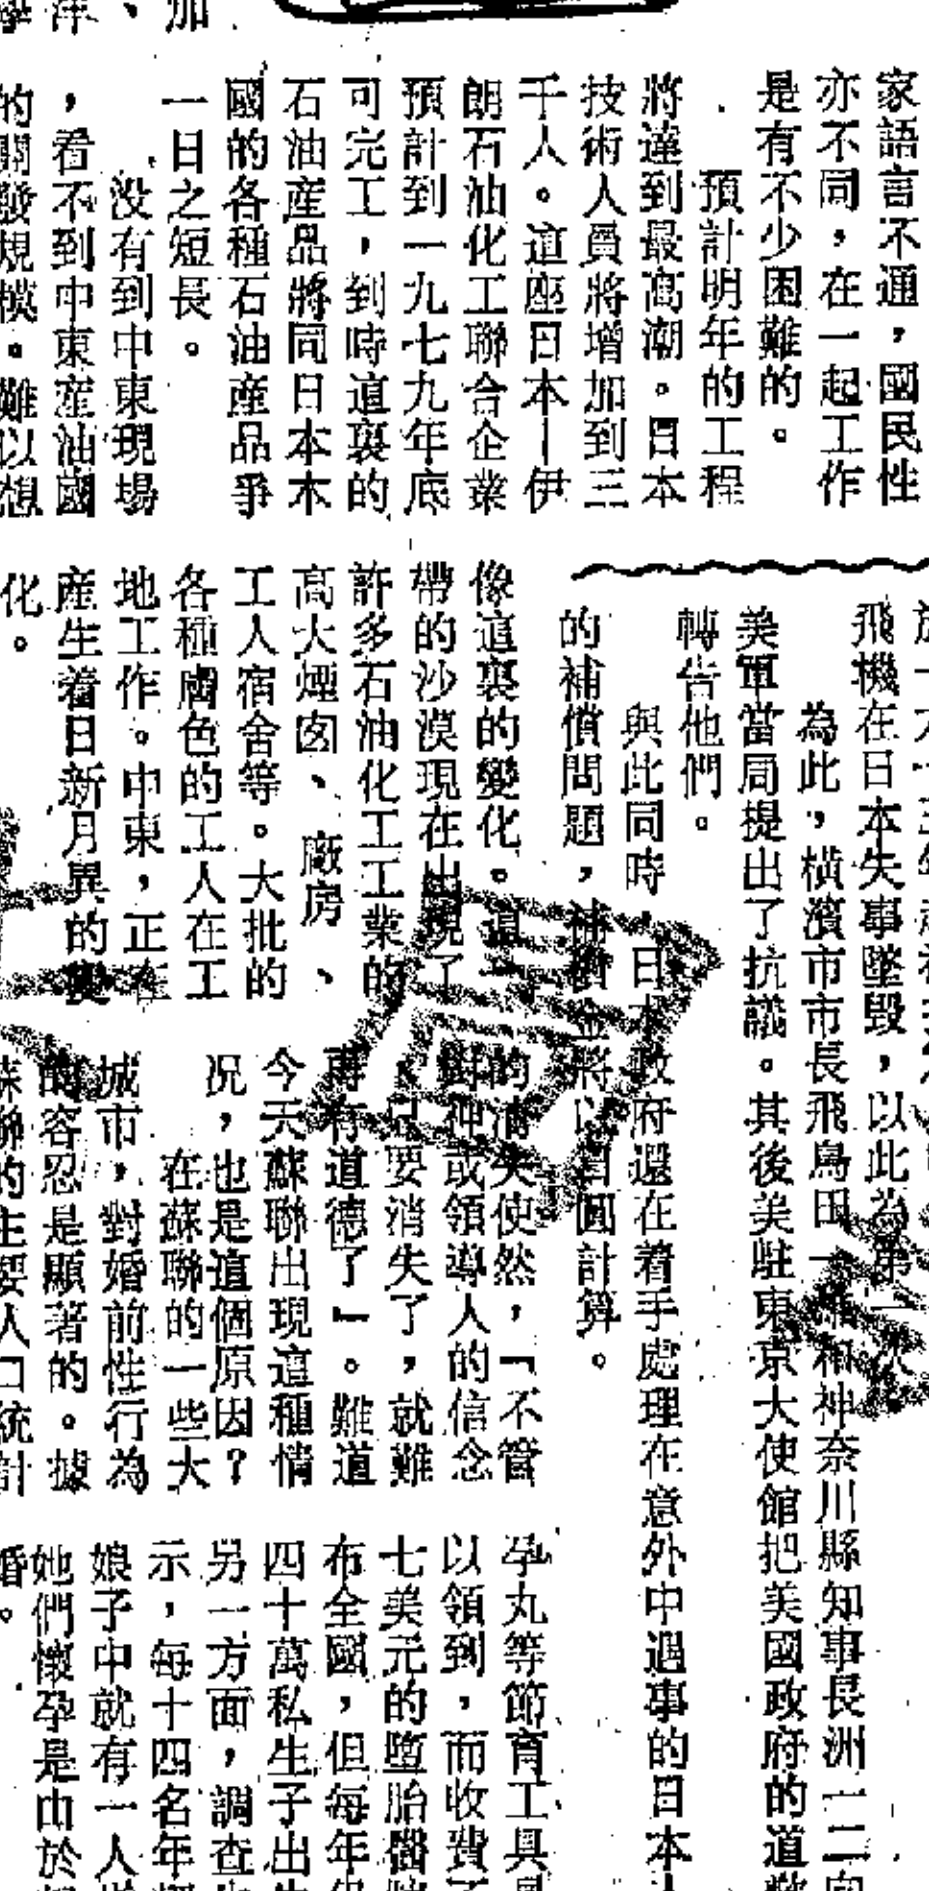 家語言不通，國民性
亦不同，在一起工作
是有不少困難的。
預計明年的工程
將達到最高潮。日本
技術人員將增加到三
千人。這座日本—伊
朗石油化工聯合企業
預計到一九七九年底
可完工，到時這裏的
石油産品將同日本木
國的各種石油産品爭
一日之短長。
没有到中東現場
，看不到中東産油國
的開發規模。難以想
像這裏的變化。這一
帶的沙漠現在出現了
許多石油化工工業的
高大煙囱、廠房、
工人宿舍等。大批的
各種膚色的工人在工
地工作。中東，正在
産生着日新月異的變
化。
飛機在日本失事墜毀，以此為第一次
為此，橫濱市市長飛鳥田一雄和神奈川縣知事長洲一二向
美軍當局提出了抗議。其後美駐東京大使館把美國政府的道歉
轉告他們。
與此同時，日本政府還在着手處理在意外中遇事的日本人
的補償問題，補償金將以日圓計算。
的消失使然，「不管
或領導人的信念
，只要消失了，就難
再有道德了」。難道
今天蘇聯出現這種情
况，也是這個原因？
在蘇聯的一些大
城市，對婚前性行為
的容忍是顯著的。據
蘇聯的主要人口統計
孕丸等節育工具
以領到，而收費
七美元的墮胎醫
布全國，但每年
四十萬私生子出生
另一方面，調查
示，每十四名年
娘子中就有一人
她們懷孕是由於
婚。